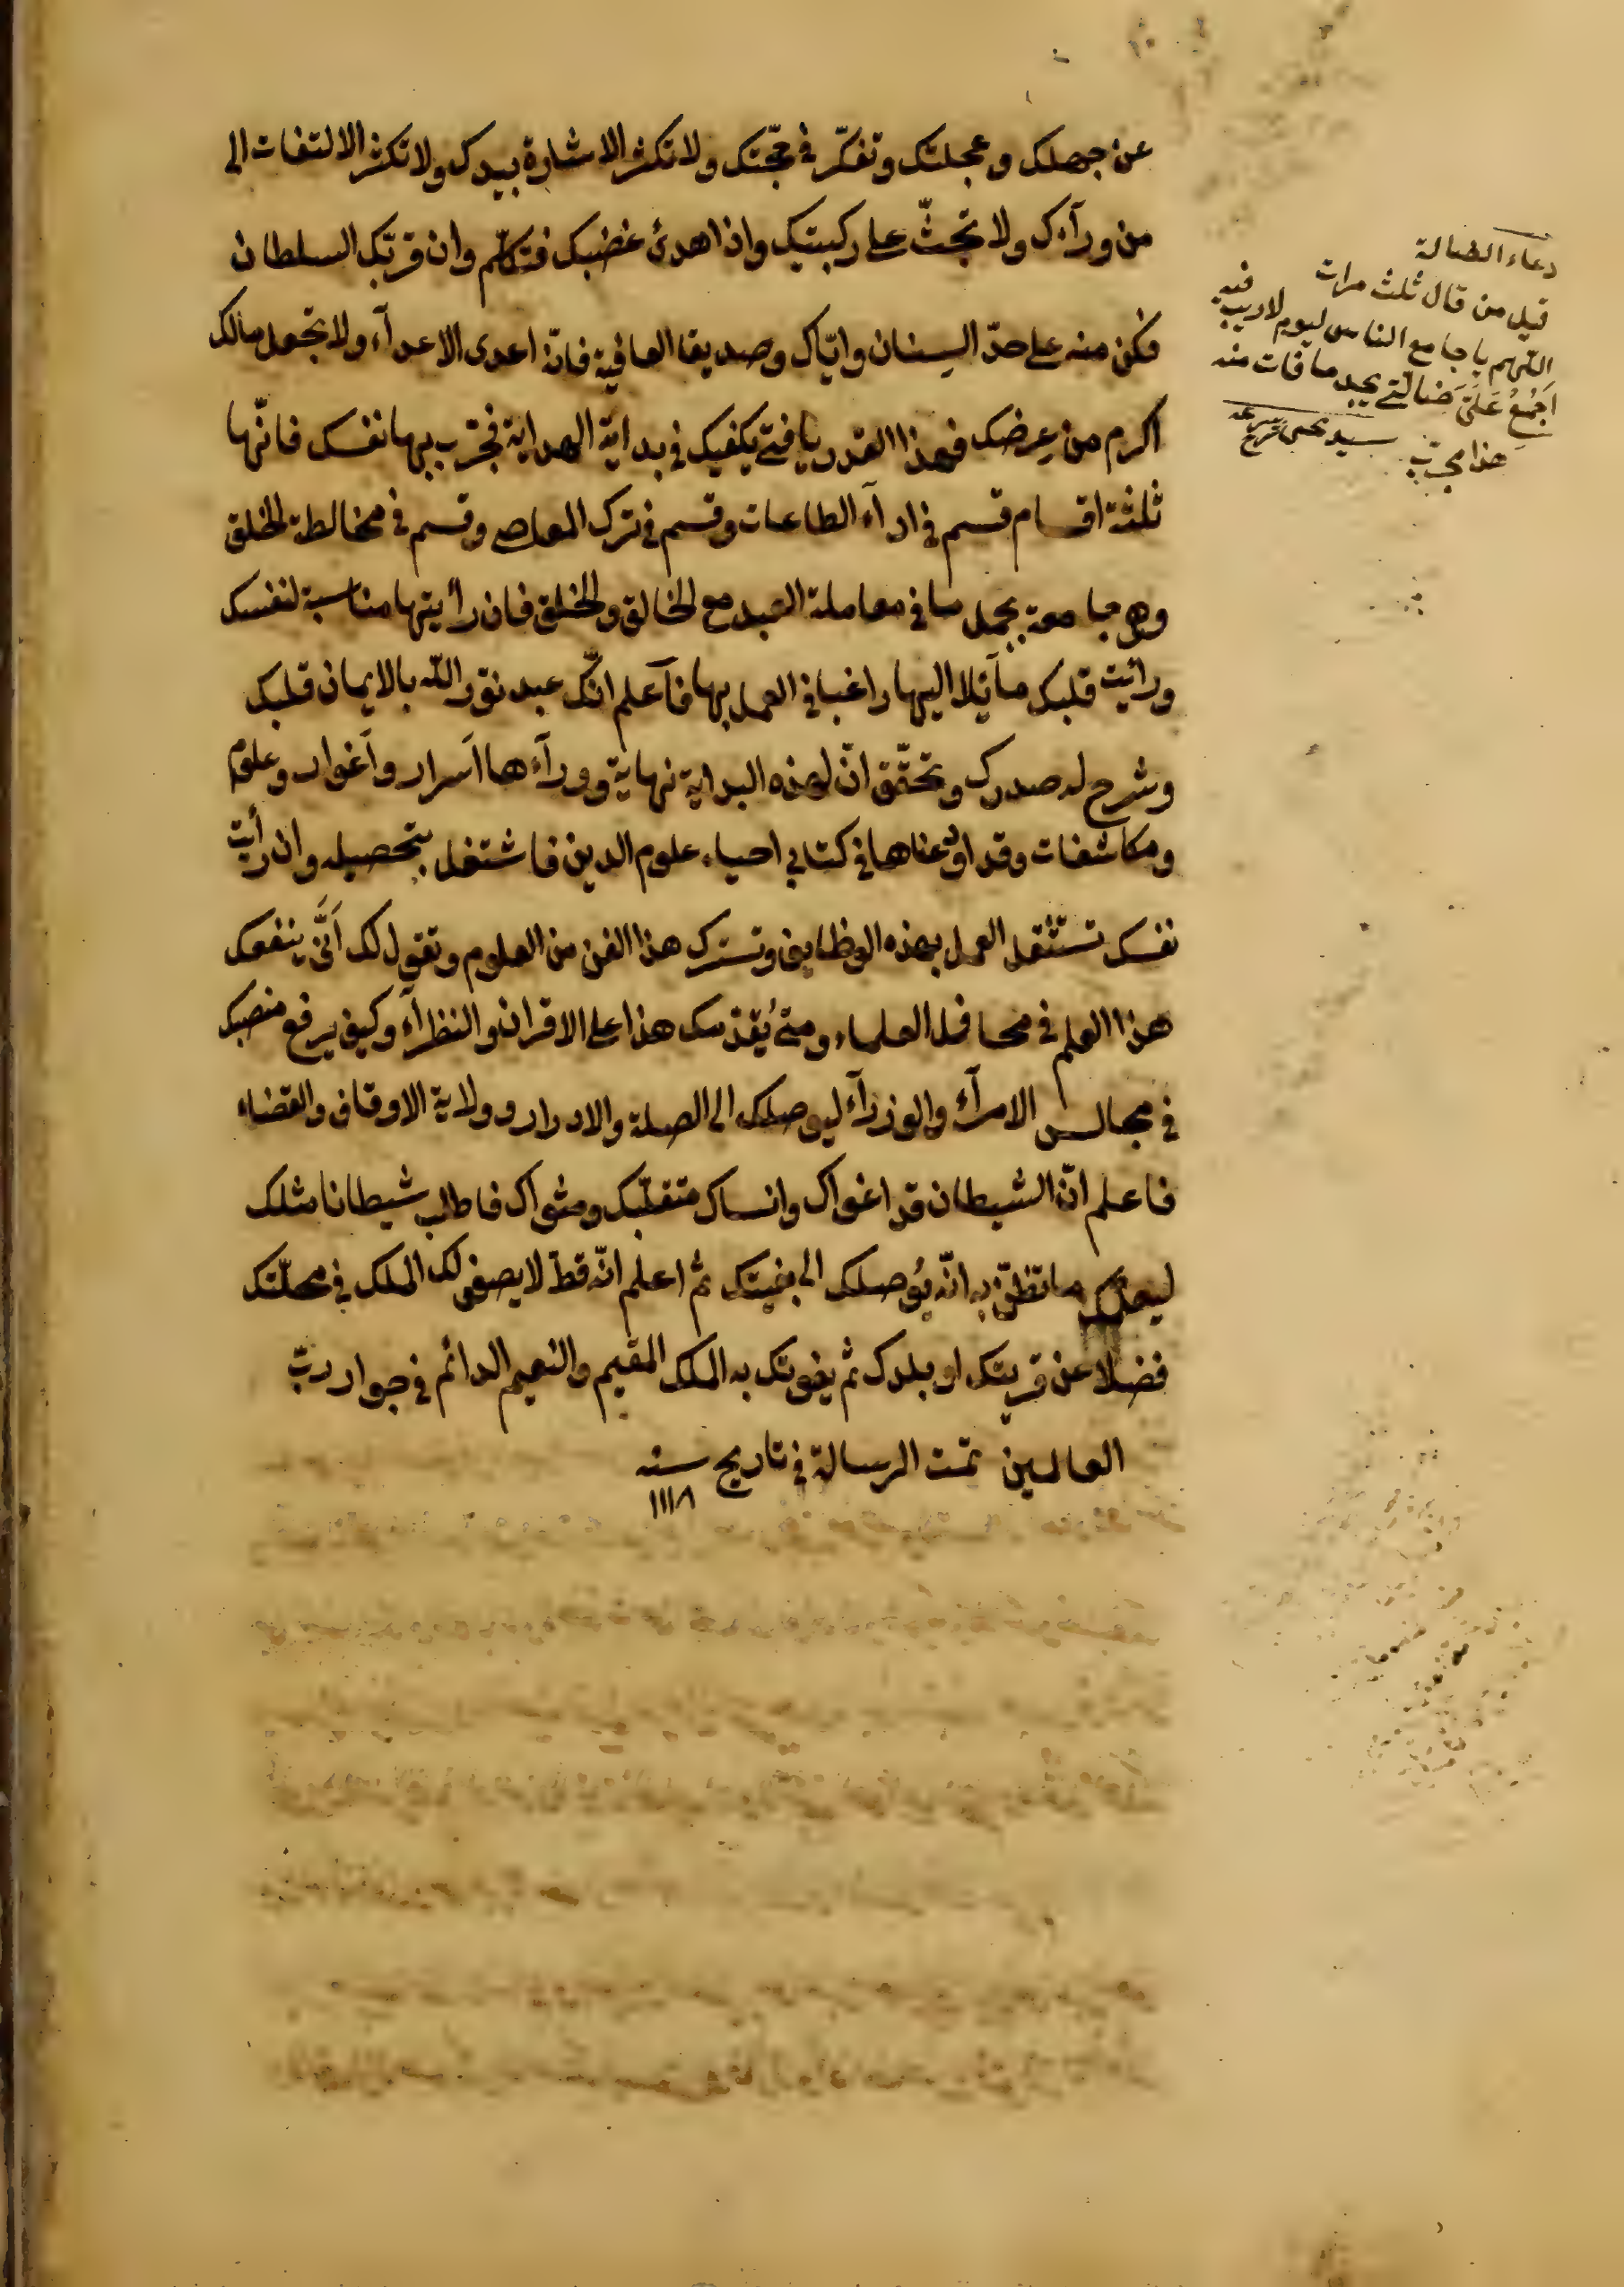 عن جهلك وعجلتك وتفكّر في حجّتك ولا تكثر الاشارة بيدك ولا تكثر الالتفات الى
من ورآءك ولا تجثّ على ركبتيك واذا هدئ غضبك فتكلّم وان قرّبك السلطان
فكن منه على حدّ السنان وايّاك وصديقا العافية فانّه اعدى الاعدآء ولا تجعل مالك
اكرم من عرضك فهذا القدر يا فتى يكفيك في بداية الهداية فجرّب بها نفسك فانّها
ثلثة اقسام قسم في ادآء الطاعات وقسم في ترك المعاصى وقسم في مخالطة الخلق
وهى جامعة بجمل ما في معاملة العبد مع الخالق والخلق فان رأيتها مناسبة لنفسك
ورايت قلبك مآئلا اليها راغبا في العمل بها فآعلم انّك عبد نوّر الله بالايمان قلبك
وشرح له صدرك وتحقّق انّ لهذه البداية نهاية ووراءها اسرار وأغوار وعلوم
ومكاشفات وقد اودعناها في كتابي احياء علوم الدين فاشتغل بتحصيله وان رأيت
نفسك تستثقل العمل بهذه الوظايف وتسترك هذا الفن من العلوم وتقول لك أنّى ينفعك
هذا العلم في محافل العلماء ومتى يُقدّمك هذا على الاقران والنظرآء وكيف يرفع منصبك
في مجالس الامرآء والوزرآء ليوصلك الى الصلة والادرار وولاية الاوقاف والقضاء
فاعلم انّ الشيطان قد اغواك وانساك متقلّبك ومثواك فاطلب شيطانا مثلك
ليعلمك ما تظنّ به انّه يُوصلك الى بغيتك ثم اعلم انّه قطّ لا يصفو لك الملك في محلّتك
فضلا عن قريتك او بلدك ثم يفوتك به الملك المقيم والنعيم الدائم في جوار ربّ
العالمين تمّت الرسالة في تاريخ سنه
١١١٨
دعاء الضالة
قيل من قال ثلث مرات
اللهم يا جامع الناس ليوم لا ريب فيه
اجْمَعْ عَلَىَّ ضالّتى يجد ما فات منه
هذا مجرّب سيد